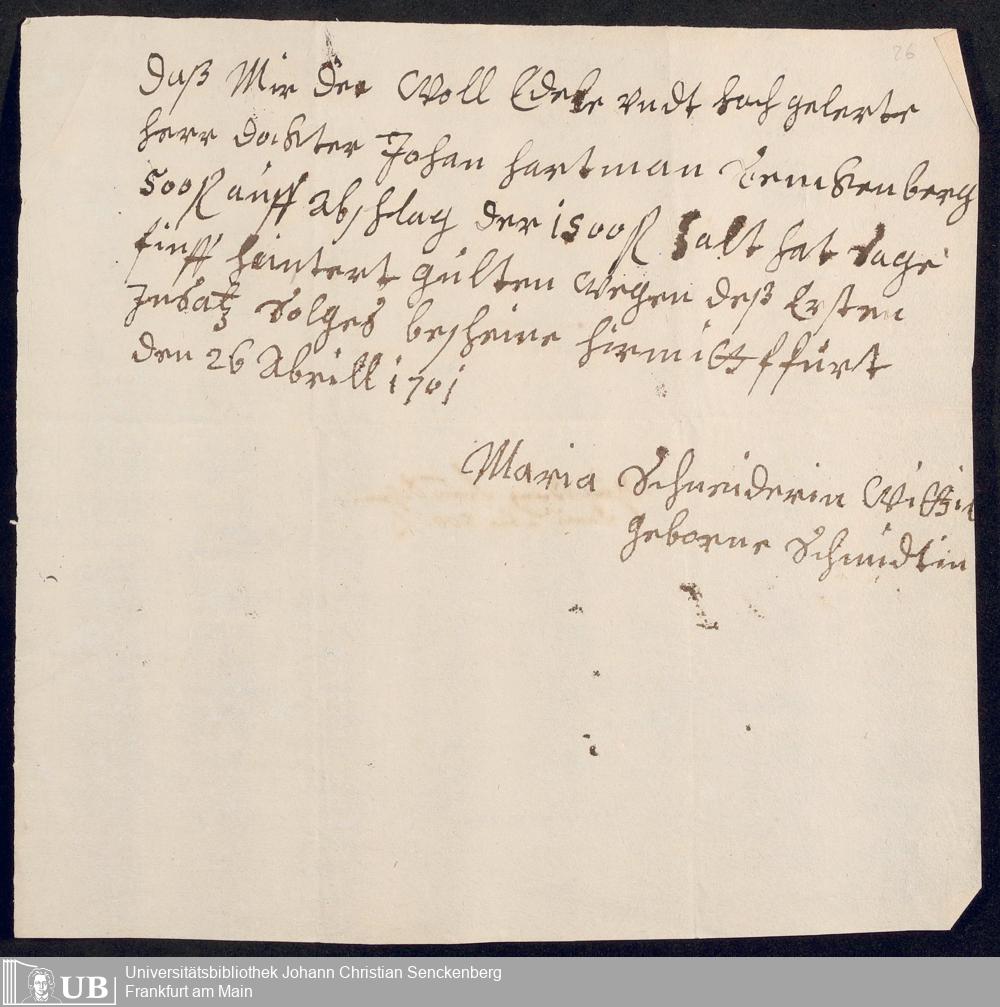 26
Daß Mir der Woll Edele vndt hoch gelerte
herr dockter Johan hartman Senckenberg
500 fl auff abschlag der 1500 fl salt hat sage
finff huntert gulten wegen deß Ersten
Insatz Solges bescheine hirmitt ffurt
den 26 Abrill 1701
Maria Schneiderin Wittib
geborne Schmidtin
UB
Universitätsbibliothek Johann Christian Senckenberg
Frankfurt am Main